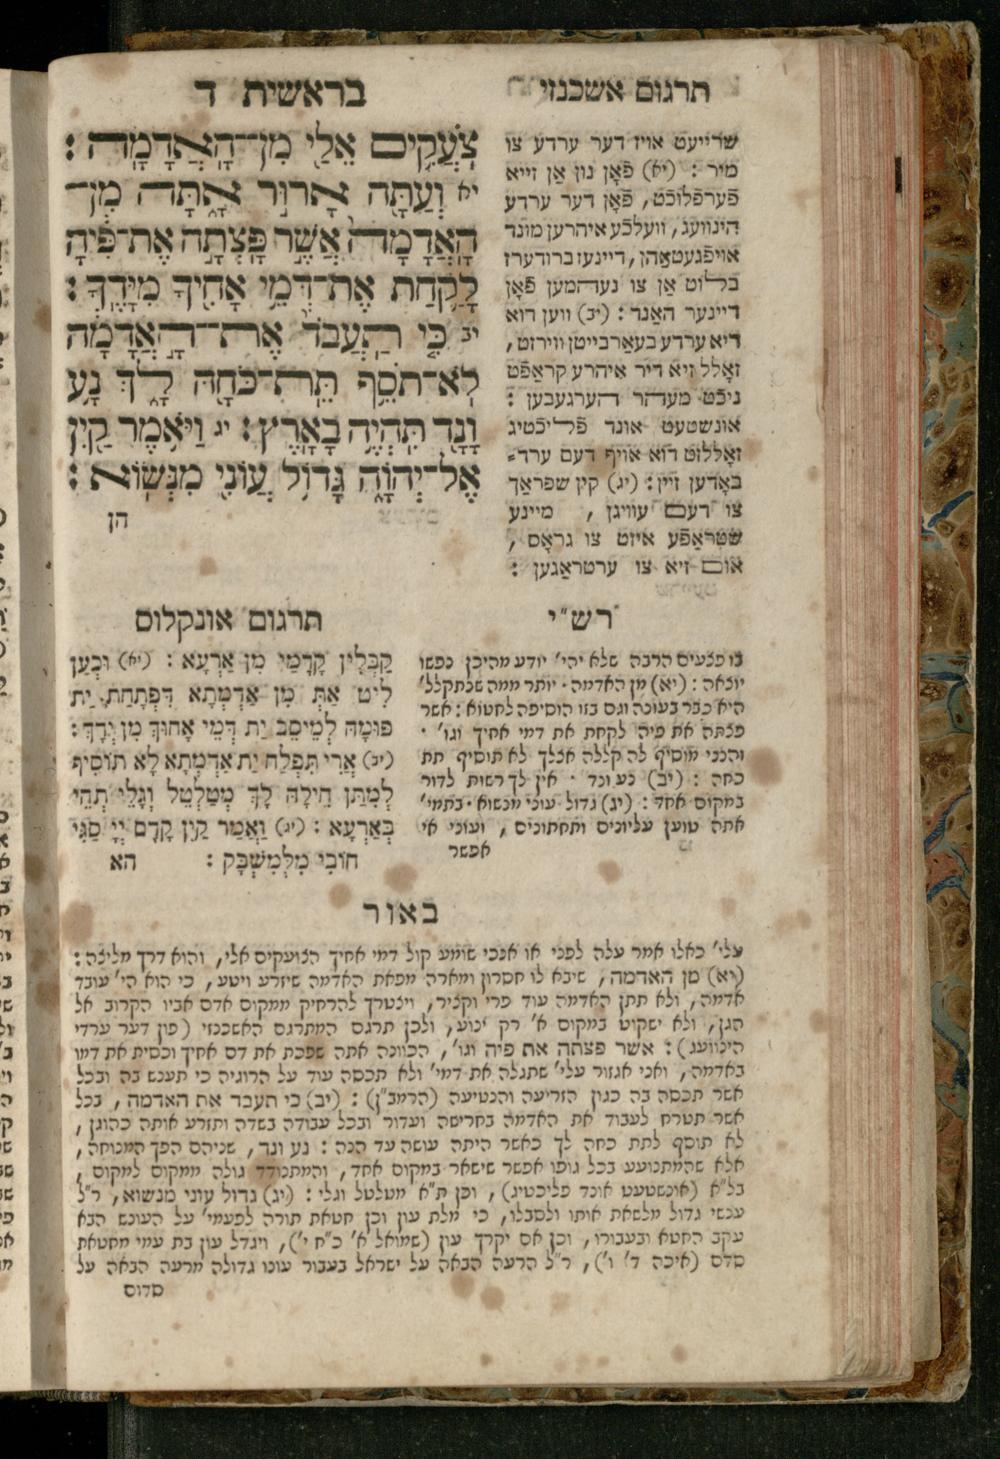 בראשית ד
צֹעֲקִים אֵלַי מִן־הָאֲדָמָה :
יא וְעַתָּה אָרוּר אָתָּה מִן־
הָאֲדָמָה אֲשֶׁר פָּצְתָה אֶת־פִּיהָ
לָקַחַת אֶת־דְּמֵי אָחִיךָ מִיָּדֶךָ :
יב כִּי תַעֲבֹד אֶת־הָאֲדָמָה
לֹא־תֹסֵף תֵּת־כֹּחָהּ לָךְ נָע
וָנָד תִּהְיֶה בָאָרֶץ : יג וַיֹּאמֶר קַיִן
אֶל־יְהוָֹה גָּדוֹל עֲוֹנִי מִנְּשׂוֹא :
הן
תרגום אשכנזי
שרייעט אויז דער ערדע צו
מיר : (יא) פֿאָן נון אַן זייא
פֿערפֿלוכֿט, פֿאָן דער ערדע
הינוועג, וועלכֿע איהרען מונד
אויפֿגעטאָהן, דיינעז ברודערז
בלוט אַן צו נעהמען פֿאָן
דיינער האַנד : (יב) ווען דוא
דיא ערדע בעאַרבייטן ווירזט,
זאָלל זיא דיר איהרע קראַפֿט
ניכֿט מעהר הערגעבען :
אונשטעט אונד פֿליכֿטיג
זאָללזט דוא אויף דעם ערד=
באָדען זיין : (יג) קין שפראַך
צו דעם עוויגן , מיינע
שטראַפֿע איזט צו גראָס ,
אום זיא צו ערטראַגען :
רש"י
בו פצעים הרבה שלא יהי' יודע מהיכן נפשו
יוצאה : (יא) מן האדמה · יותר ממה שנתקלל'
היא כבר בעונה וגם בזו הוסיפה לחטוא : אשר
פצתה את פיה לקחת את דמי אחיך וגו' ·
והנני מוסיף לה קללה אצלך לא תוסיף תת
כחה : (יב) נע ונד · אין לך רשות לדור
במקום אחד : (יג) גדול עוני מנשוא · בתמי'
אתה טוען עליונים ותחתונים , ועוני אי
אפשר
תרגום אונקלוס
קַבְּלִין קֳדָמַי מִן אַרְעָא : (יא) וּכְעַן
לִיט אַתְּ מִן אַדְמְתָא דִּפְתָחַת יַת
פּוּמָהּ לְמִיסַב יַת דְּמֵי אָחוּךְ מִן יְדָךְ :
(יב) אֲרֵי תִפְלַח יַת אַדְמְתָא לָא תוֹסִיף
לְמִתַּן חֵילָהּ לָךְ מְטַלְטֵל וְגָלֵי תְהֵי
בְּאַרְעָא : (יג) וַאֲמַר קַיִן קֳדָם יְיָ סַגִּי
חוֹבִי מִלְּמִשְׁבָּק :
הא
באור
עלי' כאלו אמר עלה לפני או אנכי שומע קול דמי אחיך הצועקים אלי, והוא דרך מליצה :
(יא) מן האדמה, שיבא לו חסרון ומארה מפאת האדמה שיזרע ויטע, כי הוא הי' עובד
אדמה, ולא תתן האדמה עוד פרי וקציר, ויצטרך להרחיק ממקום אדם אביו הקרוב אל
הגן, ולא ישקוט במקום א' רק ינוע, ולכן תרגם המתרגם האשכנזי (פון דער ערדי
הינוועג) : אשר פצתה את פיה וגו', הכוונה אתה שפכת את דם אחיך וכסית את דמו
באדמה, ואני אגזור עלי' שתגלה את דמי' ולא תכסה עוד על הרוגיה כי תענש בה ובכל
אשר תכסה בה כגון הזריעה והנטיעה (הרמב"ן) : (יב) כי תעבד את האדמה , בכל
אשר תטרח לעבוד את האדמה בחרישה ועדור ובכל עבודה בשדה ותזרע אותה כהוגן ,
לא תוסף לתת כחה לך כאשר היתה עושה עד הנה : נע ונד, שניהם הפך המנוחה,
אלא שהמתנועע בכל גופו אפשר שישאר במקום אחד, והמתנודד גולה ממקום למקום ,
בל"א (אונשטעט אונד פליכטיג) , וכן ת"א מטלטל וגלי : (יג) גדול עוני מנשוא, ר"ל
ענשי גדול מלשאת אותו ולסבלו, כי מלת עון וכן חטאת תורה לפעמי' על העונש הבא
עקב החטא ובעבורו, וכן אם יקרך עון (שמואל א' כ"ח י'), ויגדל עון בת עמי מחטאת
סדם (איכה ד' ו'), ר"ל הרעה הבאה על ישראל בעבור עונו גדולה מרעה הבאה על
סדום